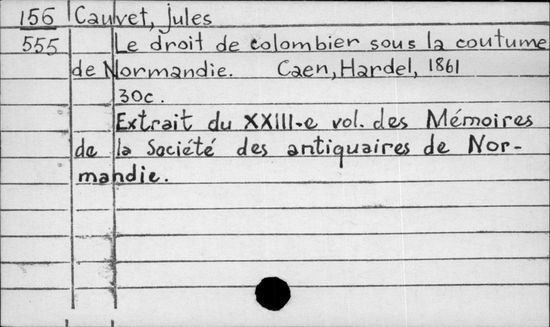 156 Cauvet, Jules
555 Le droit de colombier sous la coutume
de Normandie. Caen, Hardel, 1861
30c.
Extrait du XXIII-e vol. des Mémoires
de la Société des antiquaires de Nor-
mandie.